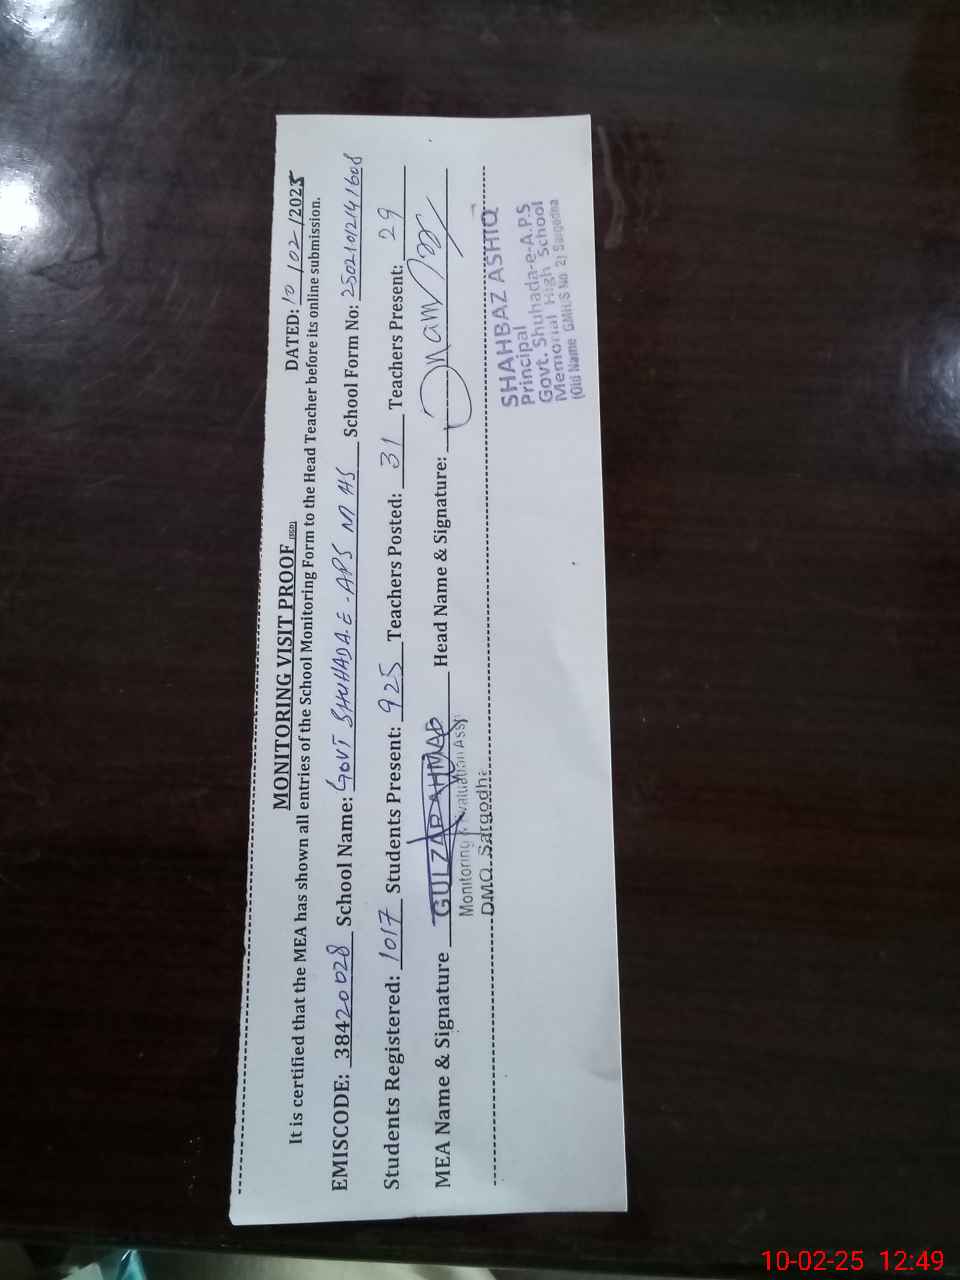 MONITORING VISIT PROOF (SSD)
DATED: 10/02/2025
It is certified that the MEA has shown all entries of the School Monitoring Form to the Head Teacher before its online submission.
EMISCODE: 38420028 School Name: GOVT SHUHADA-E-APS M HS School Form No:
Students Registered: 1017 Students Present: 925 Teachers Posted: 31 Teachers Present: 29
MEA Name & Signature GULZAR AHMAD Head Name & Signature:
Monitoring & Evaluation Asst
DMO. Sargodha
SHAHBAZ ASHIQ
Principal
Govt. Shuhada-e-A.P.S
Memorial High School
(Old Name GMHS No. 2) Sargodha
10-02-25 12:49